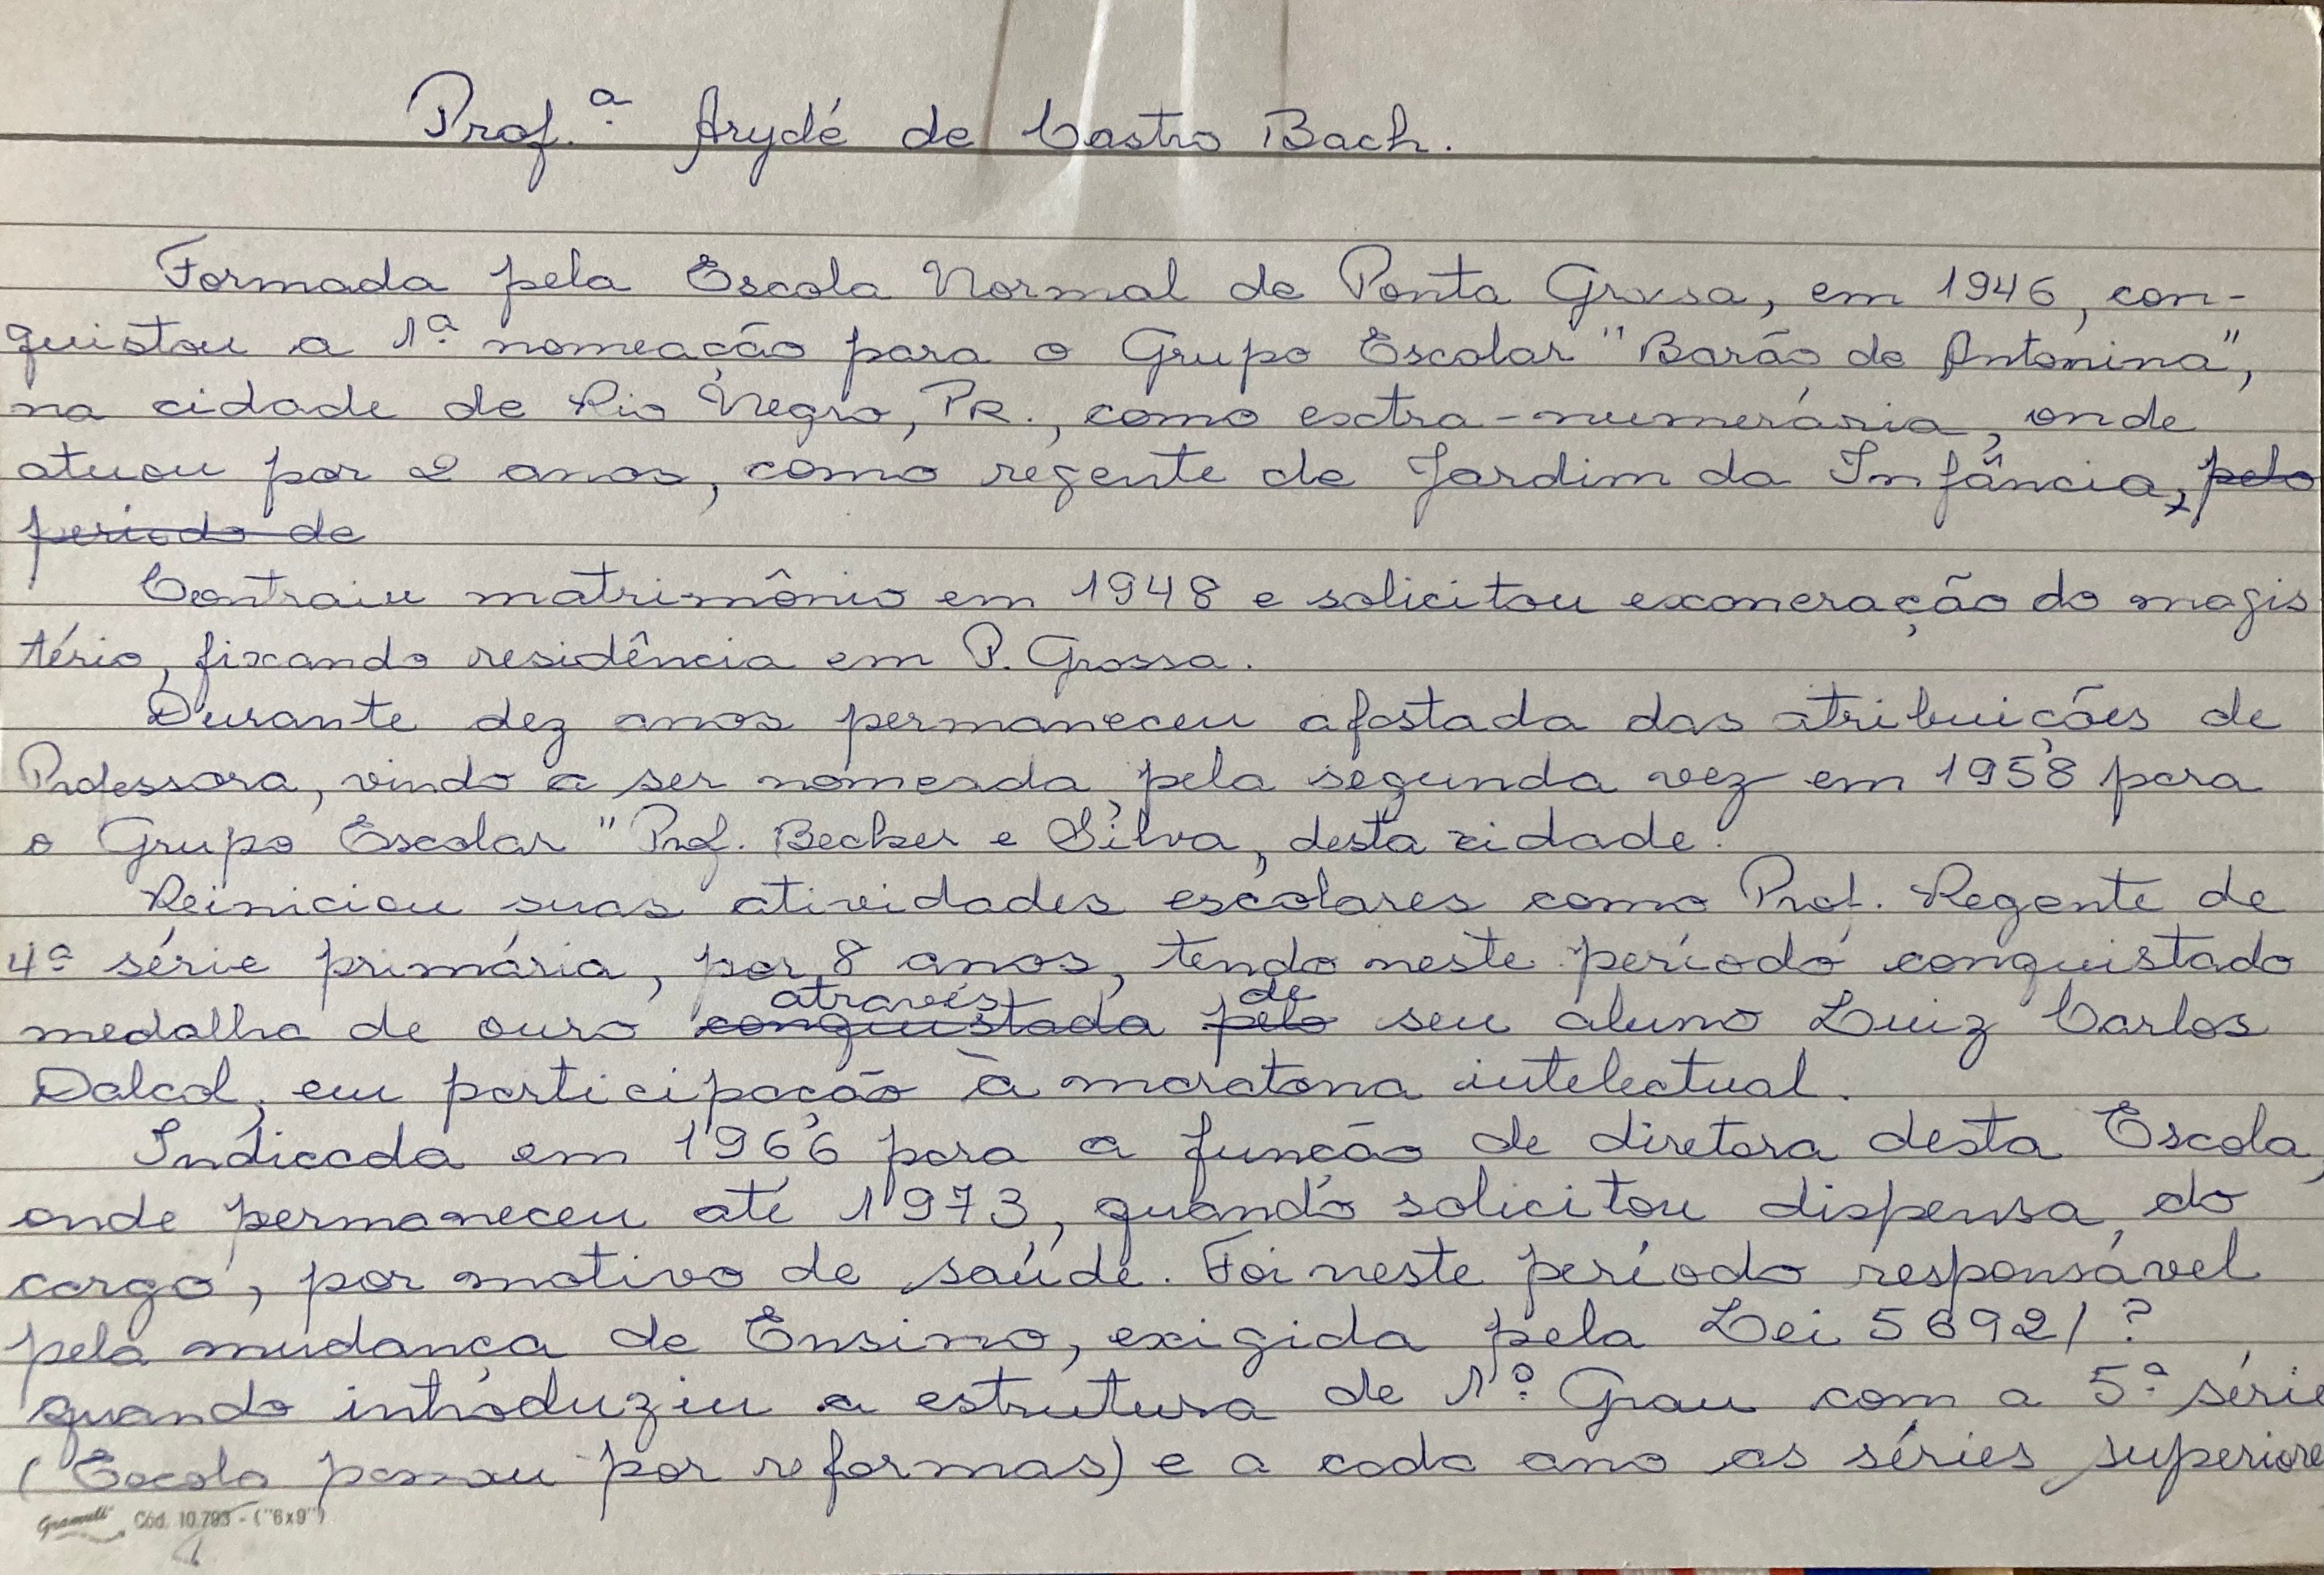 Prof.ª Arydé de Castro Bach.
Formada pela Escola Normal de Ponta Grossa, em 1946, con-
quistou a 1ª nomeação para o Grupo Escolar "Barão de Antonina",
na cidade de Rio Negro, PR., como extra-numerária, onde
atuou por 2 anos, como regente de Jardim da Infância, pelo
período de
Contraiu matrimônio em 1948 e solicitou exoneração do magis
tério, fixando residência em P. Grossa.
Durante dez anos permaneceu afastada das atribuições de
Professora, vindo a ser nomeada pela segunda vez em 1958 para
o Grupo Escolar "Prof. Becker e Silva", desta cidade.
Reiniciou suas atividades escolares como Prof. Regente de
4ª série primária, por 8 anos, tendo neste período conquistado
através de
medalha de ouro conquistada pelo seu aluno Luiz Carlos
Dalcol, em participação à maratona intelectual.
Indicada em 1966 para a função de diretora desta Escola,
onde permaneceu até 1973, quando solicitou dispensa do
cargo, por motivo de saúde. Foi neste período responsável
pela mudança de Ensino, exigida pela Lei 5692/?
quando introduziu a estrutura de 1º Grau com a 5ª série
(Escola passou por reformas) e a cada ano as séries superiore
Cód. 10.793 - ("6x9")